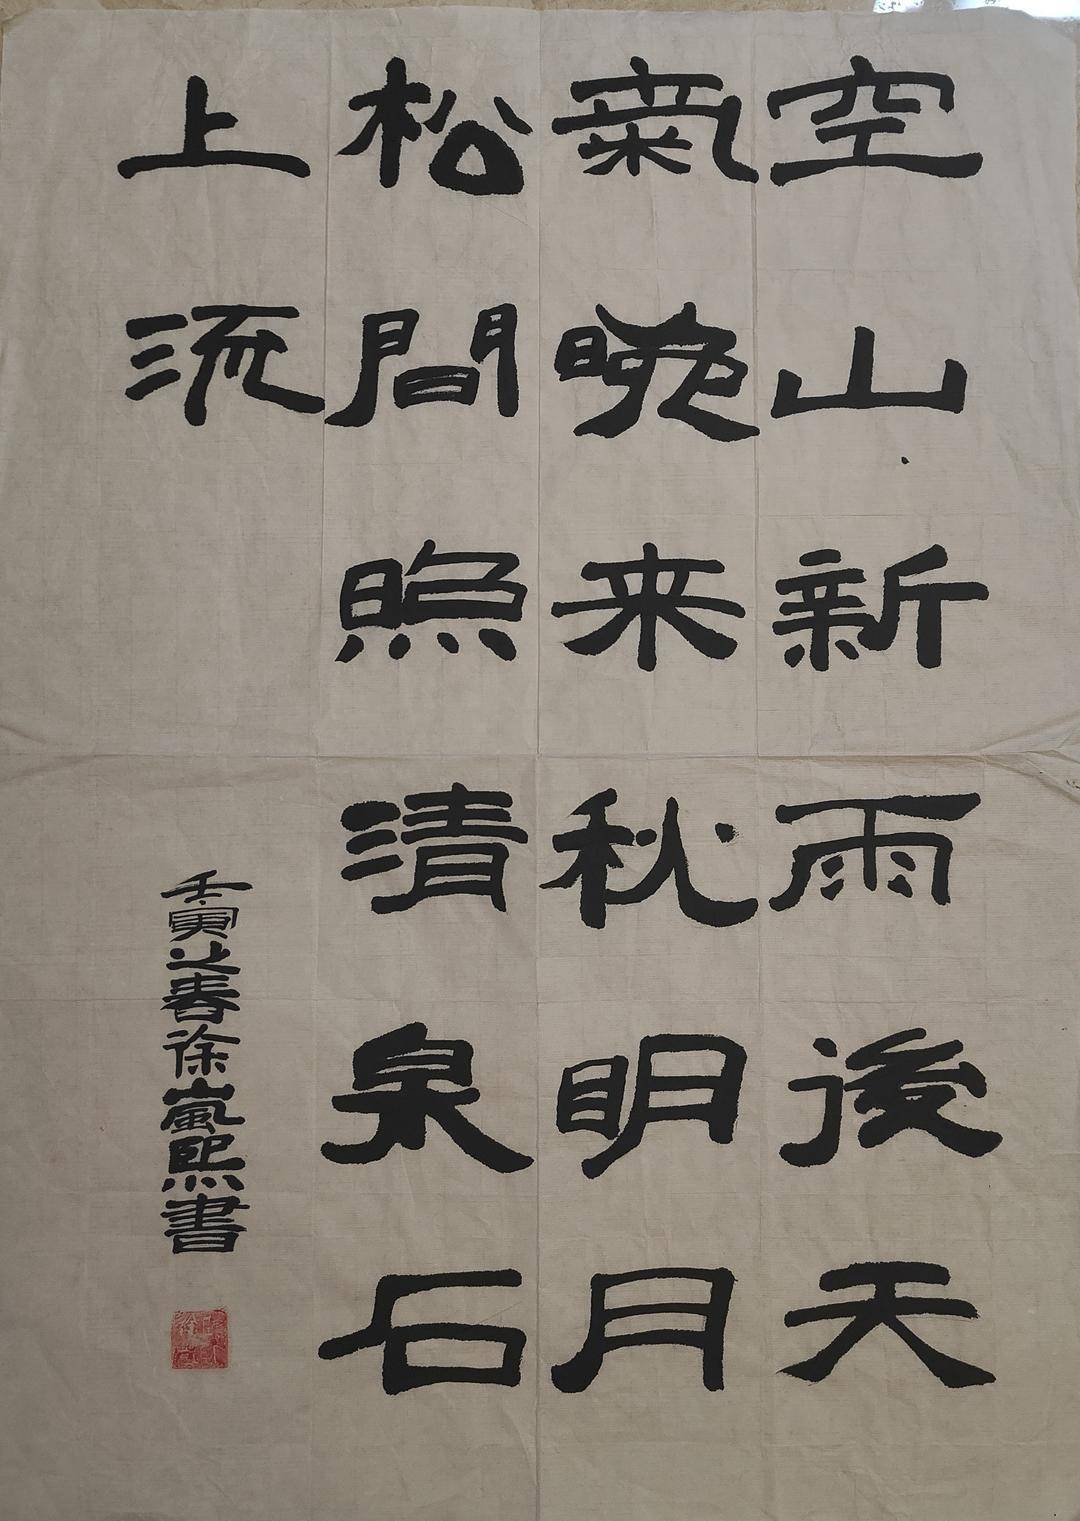 空山新雨後天
氣晚来秋明月
松間照清泉石
上流
壬寅之春徐嵐熙書